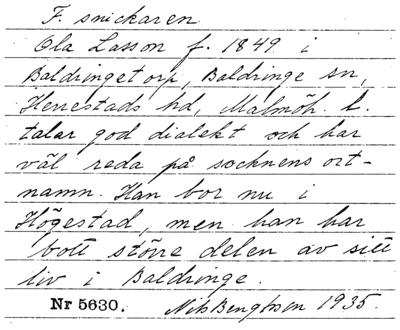 F. snickaren
Ola Lasson f. 1849 i
Baldringetorp, Baldringe sn,
Herrestads hd, Malmöh. l.
talar god dialekt och har
väl reda på socknens ort-
namn. Han bor nu i
Högestad, men han har
bott större delen av sitt
liv i Baldringe.
Nr 5630. Nils Bengtsson 1935.